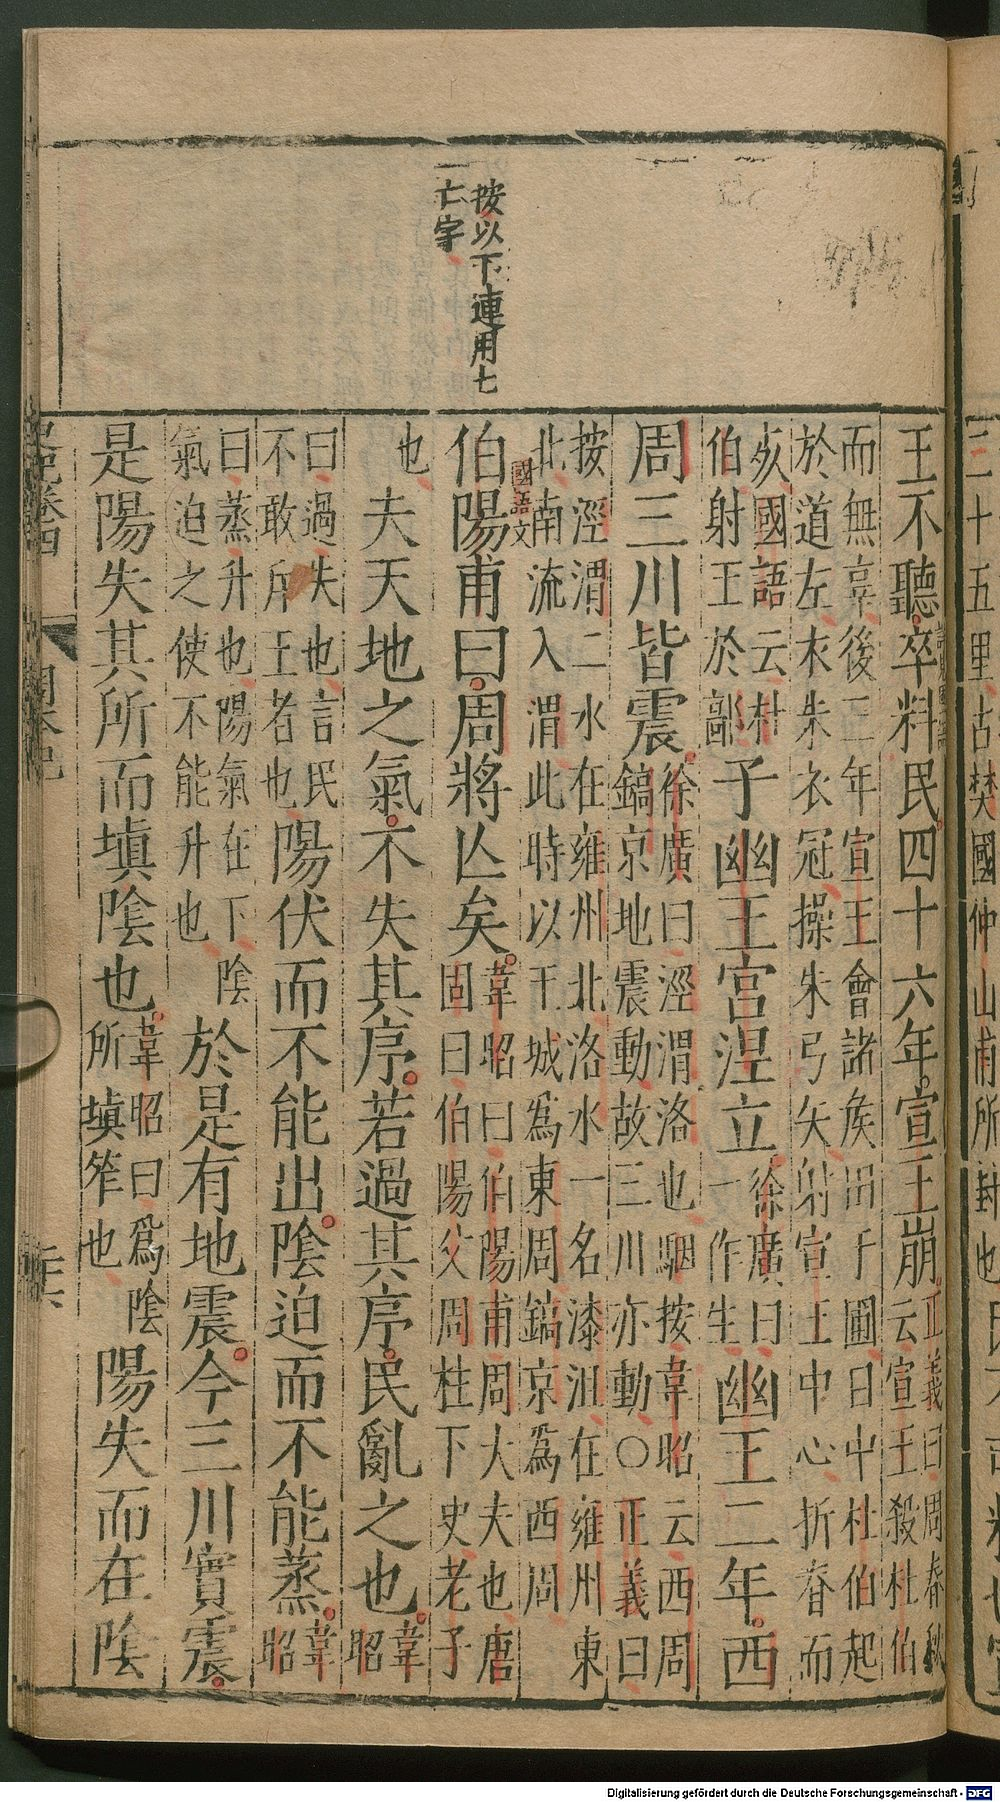 三十五里古樊國仲山甫所封也
王不聽卒料民四十六年宣王崩
正義曰周春秋
云宣王殺杜伯
而無辜後三年宣王會諸矦田于圃日中杜伯起
於道左衣朱衣冠操朱弓矢射宣王中心折脊而
死國語云杜
伯射王於鄗
子幽王宮涅立
徐廣曰
一作生
幽王二年西
周三川皆震
徐廣曰涇渭洛也駰按韋昭云西周
鎬京地震動故三川亦動○正義曰
按涇渭二水在雍州北洛水一名漆沮在雍州東
北南流入渭此時以王城爲東周鎬京爲西周
國語文
按以下連用七
亡字
伯陽甫曰周將亾矣
韋昭曰伯陽甫周大夫也唐
固曰伯陽父周柱下史老子
也
夫天地之氣不失其序若過其序民亂之也
韋
昭
曰過失也言民
不敢斥王者也
陽伏而不能出陰迫而不能蒸
韋
昭
曰蒸升也陽氣在下陰
氣迫之使不能升也
於是有地震今三川實震
是陽失其所而塡陰也
韋昭曰爲陰
所塡笮也
陽失而在陰
Digitalisierung gefördert durch die Deutsche Forschungsgemeinschaft - DFG